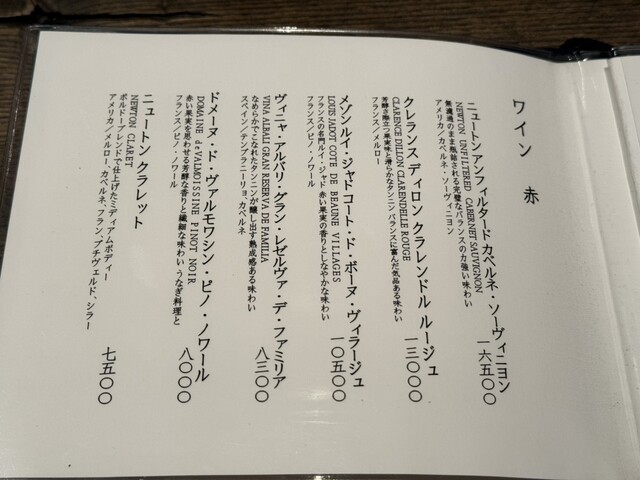 ワイン 赤
ニュートン アンフィルタード カベルネ・ソーヴィニヨン 一六五〇〇
NEWTON UNFILTERED CABERNET SAUVIGNON
無濾過のまま瓶詰される完璧なバランスの力強い味わい
アメリカ/カベルネ・ソーヴィニヨン
クレランス ディロン クラレンドル ルージュ 一三〇〇〇
CLARENCE DILLON CLARENDELLE ROUGE
芳醇さ際立つ果実味と滑らかなタンニン バランスに富んだ気品ある味わい
フランス/メルロー
メゾン ルイ・ジャド コート・ド・ボーヌ・ヴィラージュ 一〇五〇〇
LOUIS JADOT COTE DE BEAUNE VILLAGES
フランスの名門ルイ・ジャド 赤い果実の香りとしなやかな味わい
フランス/ピノ・ノワール
ヴィニャ・アルバリ・グラン・レゼルヴァ・デ・ファミリア 八三〇〇
VINA ALBALI GRAN RESERVA DE FAMILIA
なめらかでこなれたタンニンが醸し出す熟成感ある味わい
スペイン/テンプラニーリョ、カベルネ
ドメーヌ・ド・ヴァルモワシン・ピノ・ノワール 八〇〇〇
DOMAINE de VALMOISSINE PINOT NOIR
赤い果実を思わせる芳醇な香りと繊細な味わい うなぎ料理と
フランス/ピノ・ノワール
ニュートン クラレット 七五〇〇
NEWTON CLARET
ボルドーブレンドで仕上げたミディアムボディー
アメリカ/メルロー、カベルネ、フラン、プチヴェルド、シラー